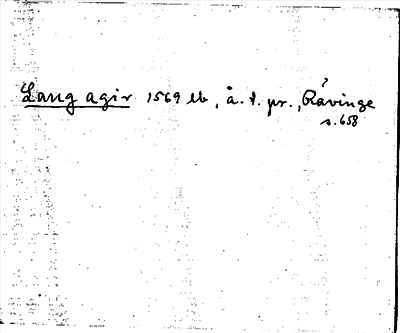 Lang agir 1569 lb, å. t. pr., Rävinge
?
s. 658